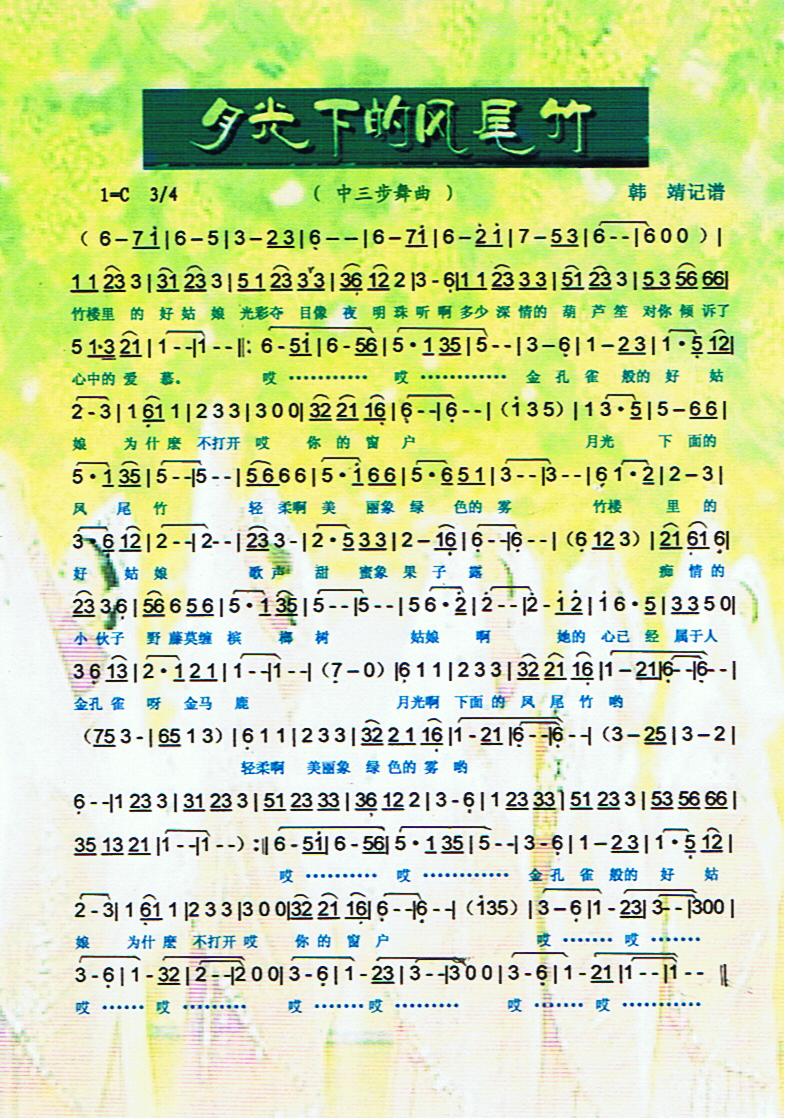 月光下的凤尾竹
1=C 3/4 （ 中三步舞曲 ） 韩 靖记谱
（ 6 – 7 i | 6 – 5 | 3 – 2 3 | 6 – – | 6 – 7 i | 6 – 2 i | 7 – 5 3 | 6 - - | 6 0 0 ）|
1 1 23 3 | 31 23 3 | 5 1 23 3 3 | 36 12 2 | 3 - 6 | 1 1 23 3 3 | 51 23 3 | 5 3 56 66 |
竹楼里 的 好 姑 娘 光彩夺 目像 夜 明 珠 听 啊 多少 深 情的 葫 芦 笙 对你 倾 诉了
5 1·3 21 | 1 - - | 1 - - ‖: 6 - 51 | 6 - 56 | 5 · 1 35 | 5 - - | 3 – 6 | 1 – 2 3 | 1 · 5 12 |
心中的 爱 慕。 哎 ………… 哎 ………… 金 孔 雀 般的 好 姑
2 - 3 | 1 61 1 | 2 3 3 | 3 0 0 | 32 21 16 | 6 - - | 6 - - |（i 3 5）| 1 3 · 5 | 5 – 6 6 |
娘 为 什 麽 不打开 哎 你 的 窗 户 月光 下 面的
5 · 1 35 | 5 - - | 5 - - | 5 6 6 6 | 5 · i 6 6 | 5 · 6 5 1 | 3 - - | 3 - - | 6 1 · 2 | 2 – 3 |
凤 尾 竹 轻 柔啊 美 丽象 绿 色的 雾 竹楼 里 的
3 · 6 12 | 2 - - | 2 - - | 23 3 - | 2 · 5 3 3 | 2 – 16 | 6 - - | 6 - - |（6 12 3）| 21 61 6 |
好 姑 娘 歌 声 甜 蜜象 果 子 露 痴 情 的
23 3 6 | 56 6 5 6 | 5 · 1 35 | 5 - - | 5 - - | 5 6 · 2 | 2 - - | 2 - i 2 | i 6 · 5 | 3 3 5 0 |
小 伙子 野 藤莫缠 槟 榔 树 姑娘 啊 她的 心已 经 属于人
3 6 13 | 2 · 1 2 1 | 1 - - | 1 - - |（7 – 0）| 6 1 1 | 2 3 3 | 32 21 16 | 1 – 21 | 6 - - | 6 - - |
金孔 雀 呀 金马 鹿 月光啊 下面 的 凤 尾 竹 哟
（75 3 - | 65 1 3）| 6 1 1 | 2 3 3 | 32 2 1 16 | 1 - 21 | 6 - - | 6 - - |（3 – 25 | 3 – 2 |
轻柔啊 美丽象 绿 色的 雾 哟
6 - - | 1 23 3 | 31 23 3 | 51 23 33 | 36 12 2 | 3 - 6 | 1 23 33 | 51 23 3 | 53 56 66 |
35 13 21 | 1 - - | 1 - - ）:‖ 6 - 51 | 6 - 56 | 5 · 1 35 | 5 - - | 3 - 6 | 1 – 2 3 | 1 · 5 12 |
哎 ………… 哎 ………… 金 孔 雀 般的 好 姑
2 - 3 | 1 61 1 | 2 3 3 | 3 0 0 | 32 21 16 | 6 - - | 6 - - |（i35）| 3 – 6 | 1 - 23 | 3 - - | 300 |
娘 为什 麽 不打开 哎 你 的 窗 户 哎 ……· 哎 ……·
3 - 6 | 1 - 32 | 2 - - | 2 0 0 | 3 - 6 | 1 - 23 | 3 - - | 3 0 0 | 3 - 6 | 1 - 21 | 1 - - | 1 - - ‖
哎 …… 哎 ……… 哎 ……· 哎 ……… 哎 ……· 哎 …………